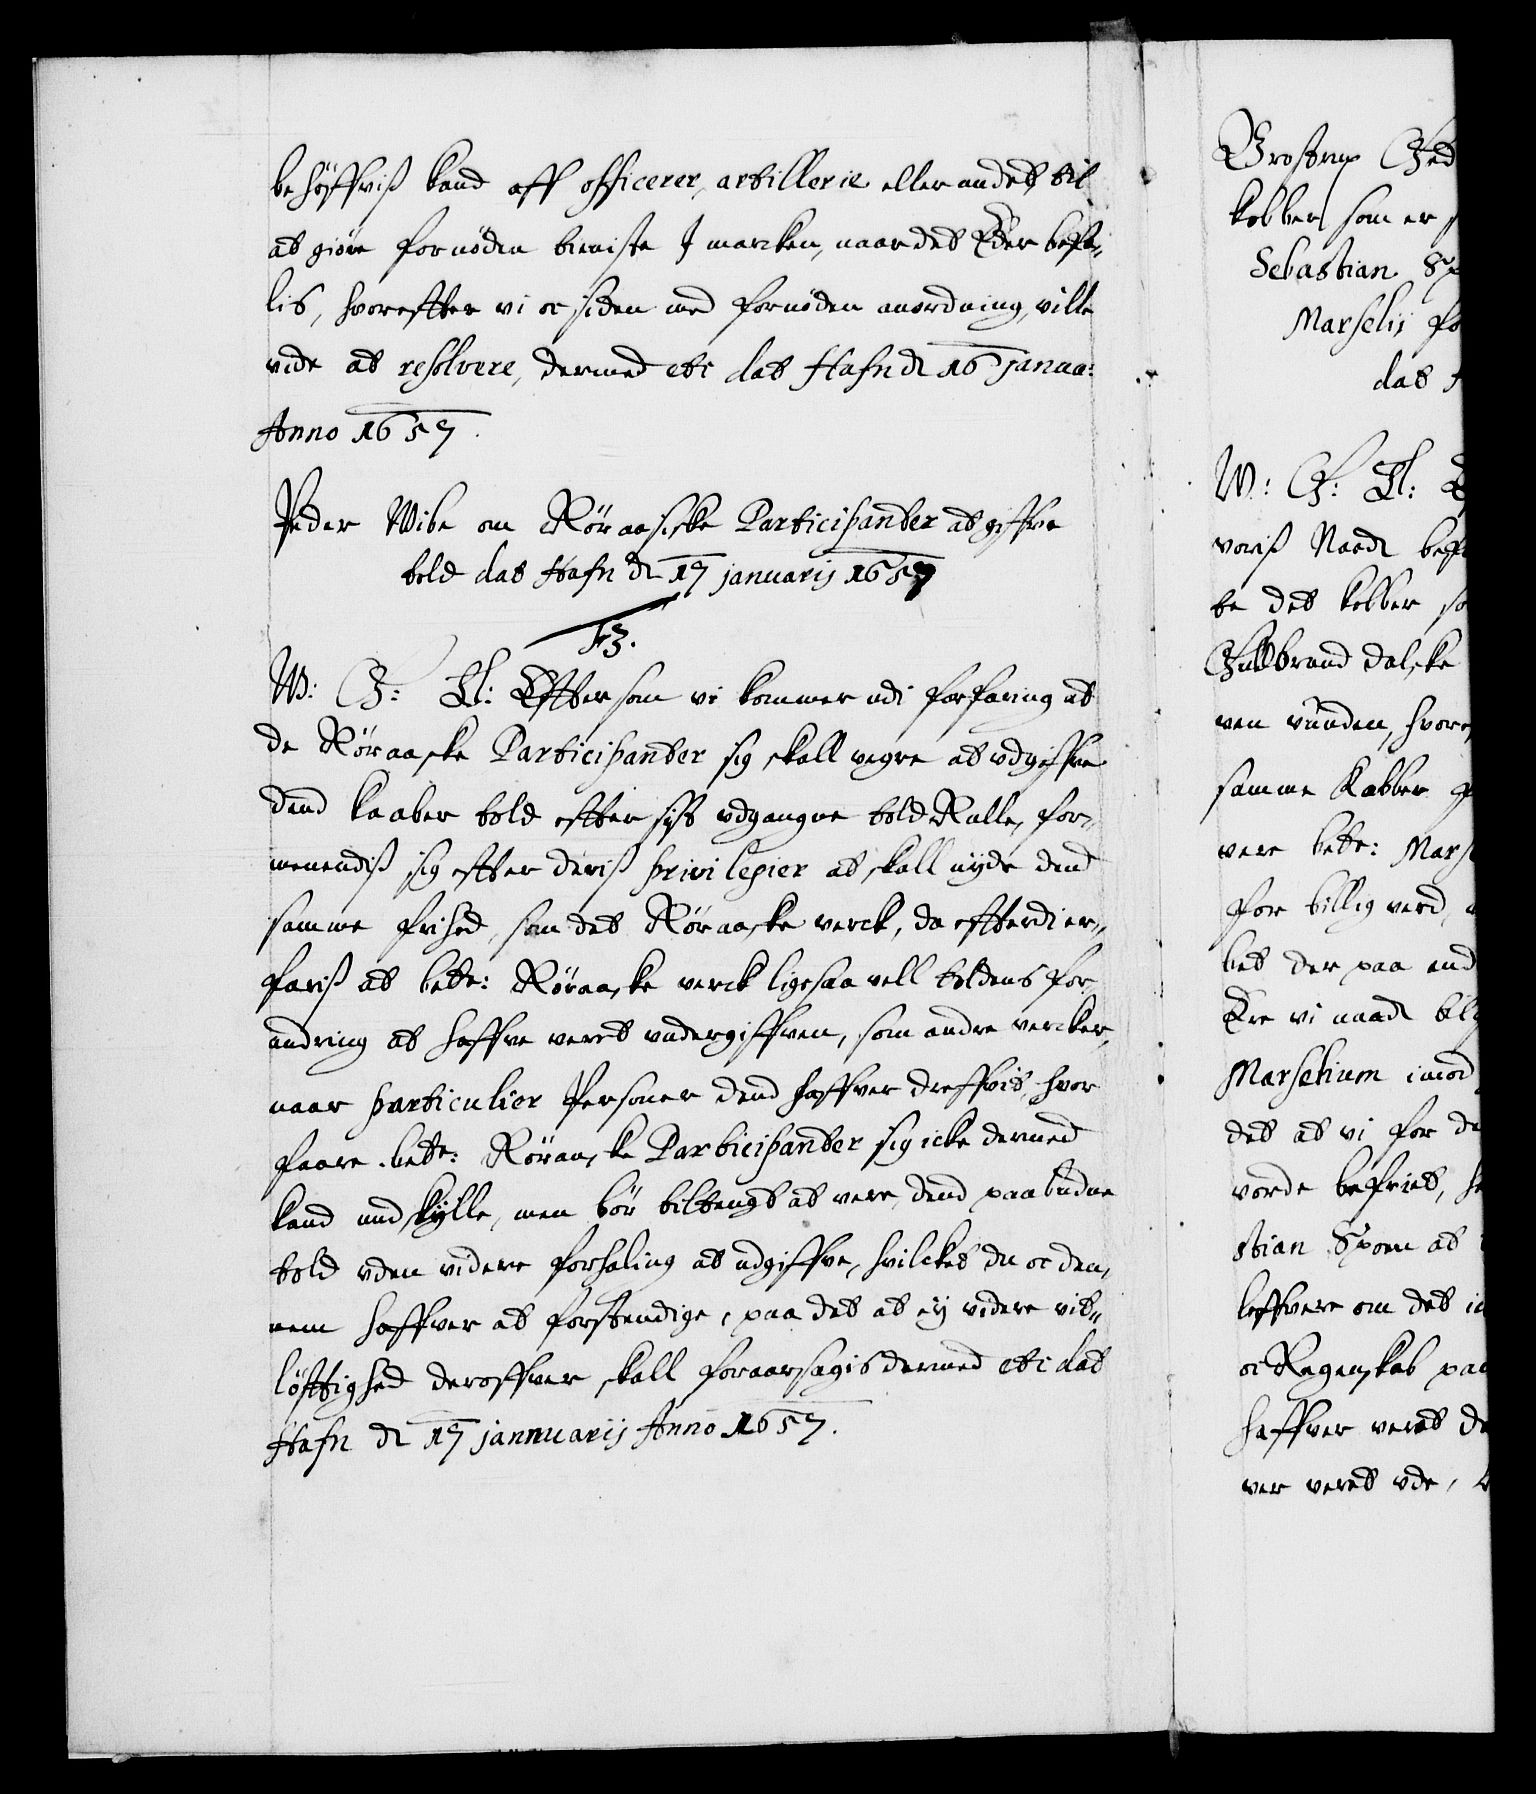 behöffvis kand aff officerer, artillerie eller andet, til
at giöre fornöden tieniste J marcken, naar det Eder befa-
lis, hvorefter vi oc siden med fornöden anordning, ville
vide at resolvere, dermed etc dat Hafn d 16 janua:
Anno 1657.
Peder Wibe om Röraasiske Participanter at giffve
told dat Hafn d 17 januarij 1657
F3.
W: G: Tl: Efftersom vi kommer udi forfaring at
de Röraaske Participanter sig skall vegre at vdgiffve
dend kaaber told effter sist vdgangne told Rulle, for-
menendis sig effter deris privilegier at skall nyde dend
samme frihed, som det Röraaske verck, da efftterdi er-
faris at bete: Röraaske verck ligesaa vell toldens for-
andring at haffve verit undergiffven, som andre vercker,
naar particulier Personer dend haffver dreffvit, hvor
faare bete: Röraaske Participanter sig icke dermed
kand undskylle, men bör tiltengt at vere, dend paabudne
told vden videre forhaling at udgiffve, hvilcket du oc den-
nem haffver at forstendige, paa det at ey videre vit-
löfftighed deroffver skall foraarsagis dermed etc dat
Hafn d 17 jannuarij Anno 1657.
Brostrup Ged
kobber som er
Sebastian Sp
Marselis fo
dat
W: G: Tl:
voris Naad bef
te det kobber so
Gulbrand dalske
ven vunden, hvore
samme Kobber
vere bete: Mars
for billig verd,
bet der paa end
Ere vi naad
Marselium imod
det at vi for de
vorde befriet,
stian Spoen at
leffvere om det
oc Regenskab paa
haffver verit de
ver verit vde,